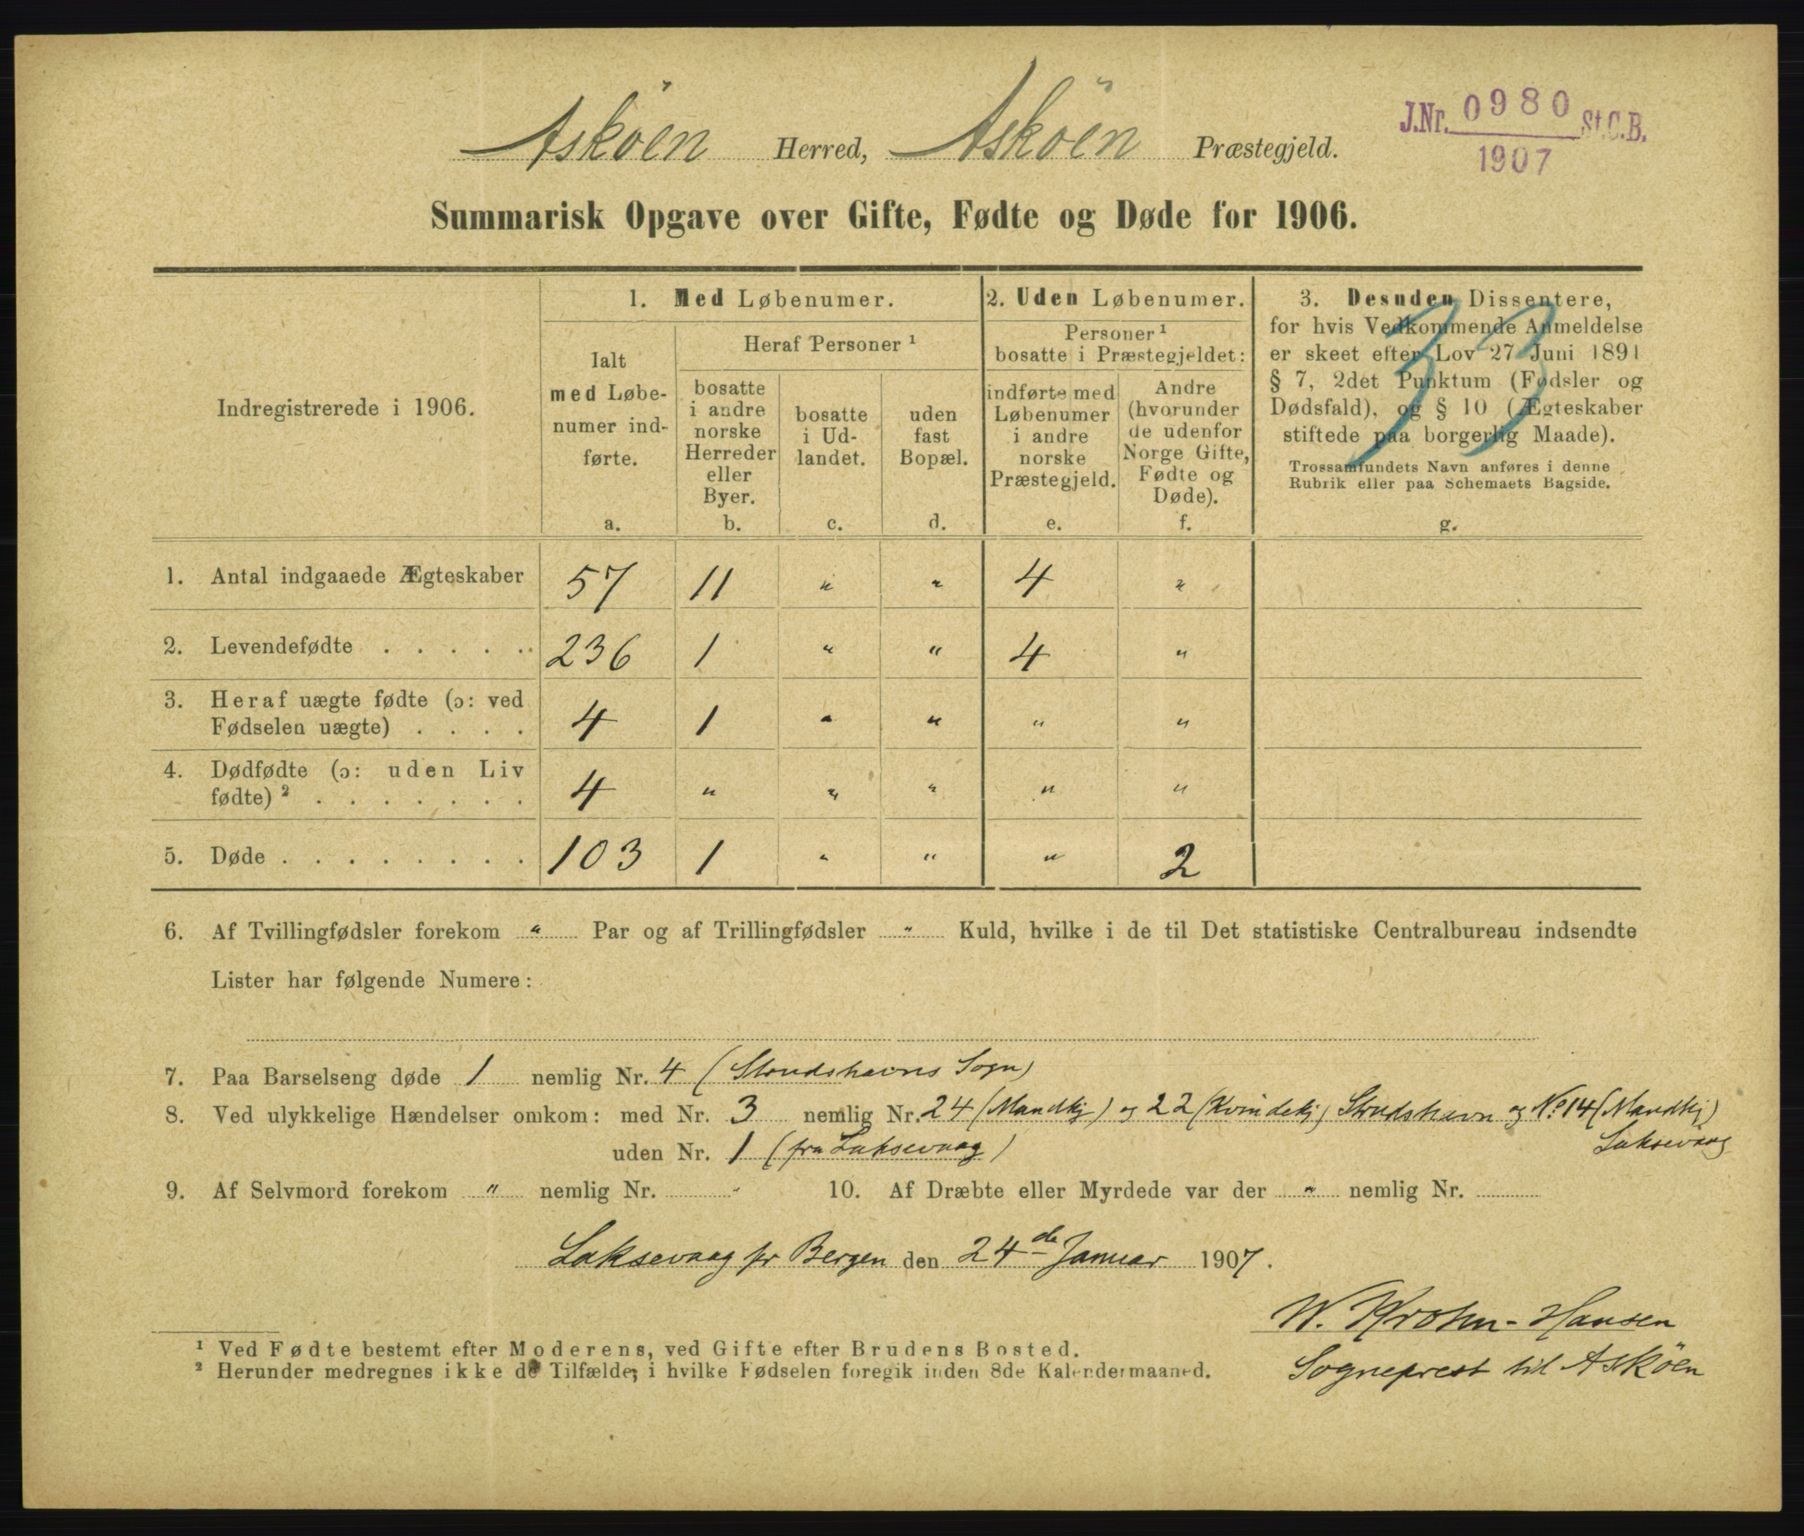 Asköen Herred, Asköen Præstegjeld.
J.Nr. 0980 St.C.B.
1907
Summarisk Opgave over Gifte, Fødte og Døde for 1906.
Indregistrerede i 1906.
1. Med Løbenumer.
Ialt
med Løbe-
numer ind-
førte.
a.
Heraf Personer ¹
bosatte
i andre
norske
Herreder
eller
Byer.
b.
bosatte
i Ud-
landet.
c.
uden
fast
Bopæl.
d.
2. Uden Løbenumer.
Personer ¹
bosatte i Præstegjeldet:
indførte med
Løbenumer
i andre
norske
Præstegjeld.
e.
Andre
(hvorunder
de udenfor
Norge Gifte,
Fødte og
Døde).
f.
3. Desuden Dissentere,
for hvis Vedkommende Anmeldelse
er skeet efter Lov 27 Juni 1891
§ 7, 2det Punktum (Fødsler og
Dødsfald), og § 10 (Ægteskaber
stiftede paa borgerlig Maade).
Trossamfundets Navn anføres i denne
Rubrik eller paa Schemaets Bagside.
g.
33
1. Antal indgaaede Ægteskaber 57 11 " " 4 "
2. Levendefødte . . . . . 236 1 " " 4 "
3. Heraf uægte fødte (ɔ: ved
Fødselen uægte) . . . . 4 1 " " " "
4. Dødfødte (ɔ: uden Liv
fødte) ² . . . . . . . 4 " " " " "
5. Døde . . . . . . . . 103 1 " " " 2
6. Af Tvillingfødsler forekom " Par og af Trillingfødsler " Kuld, hvilke i de til Det statistiske Centralbureau indsendte
Lister har følgende Numere:
7. Paa Barselseng døde 1 nemlig Nr. 4 (Strudshavns Sogn)
8. Ved ulykkelige Hændelser omkom: med Nr. 3 nemlig Nr. 24 (Mandkj) og 22 (Kvindekj) Strudshavn og No 14 (Mandkj)
Laksevaag
uden Nr. 1 (fra Laksevaag)
9. Af Selvmord forekom " nemlig Nr. " 10. Af Dræbte eller Myrdede var der " nemlig Nr.
Laksevaag pr Bergen den 24de Januar 1907.
W. Krohn-Hansen
Sogneprest til Asköen
¹ Ved Fødte bestemt efter Moderens, ved Gifte efter Brudens Bosted.
² Herunder medregnes ikke de Tilfælde, i hvilke Fødselen foregik inden 8de Kalendermaaned.